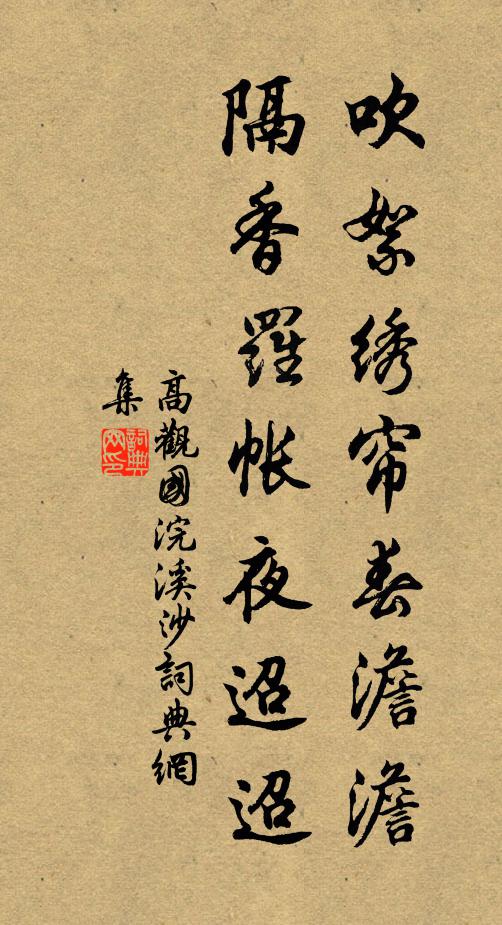 吹絮绣帘春澹澹
隔香羅帐夜迢迢
高觀國浣溪沙詞典網
集
詞典网印